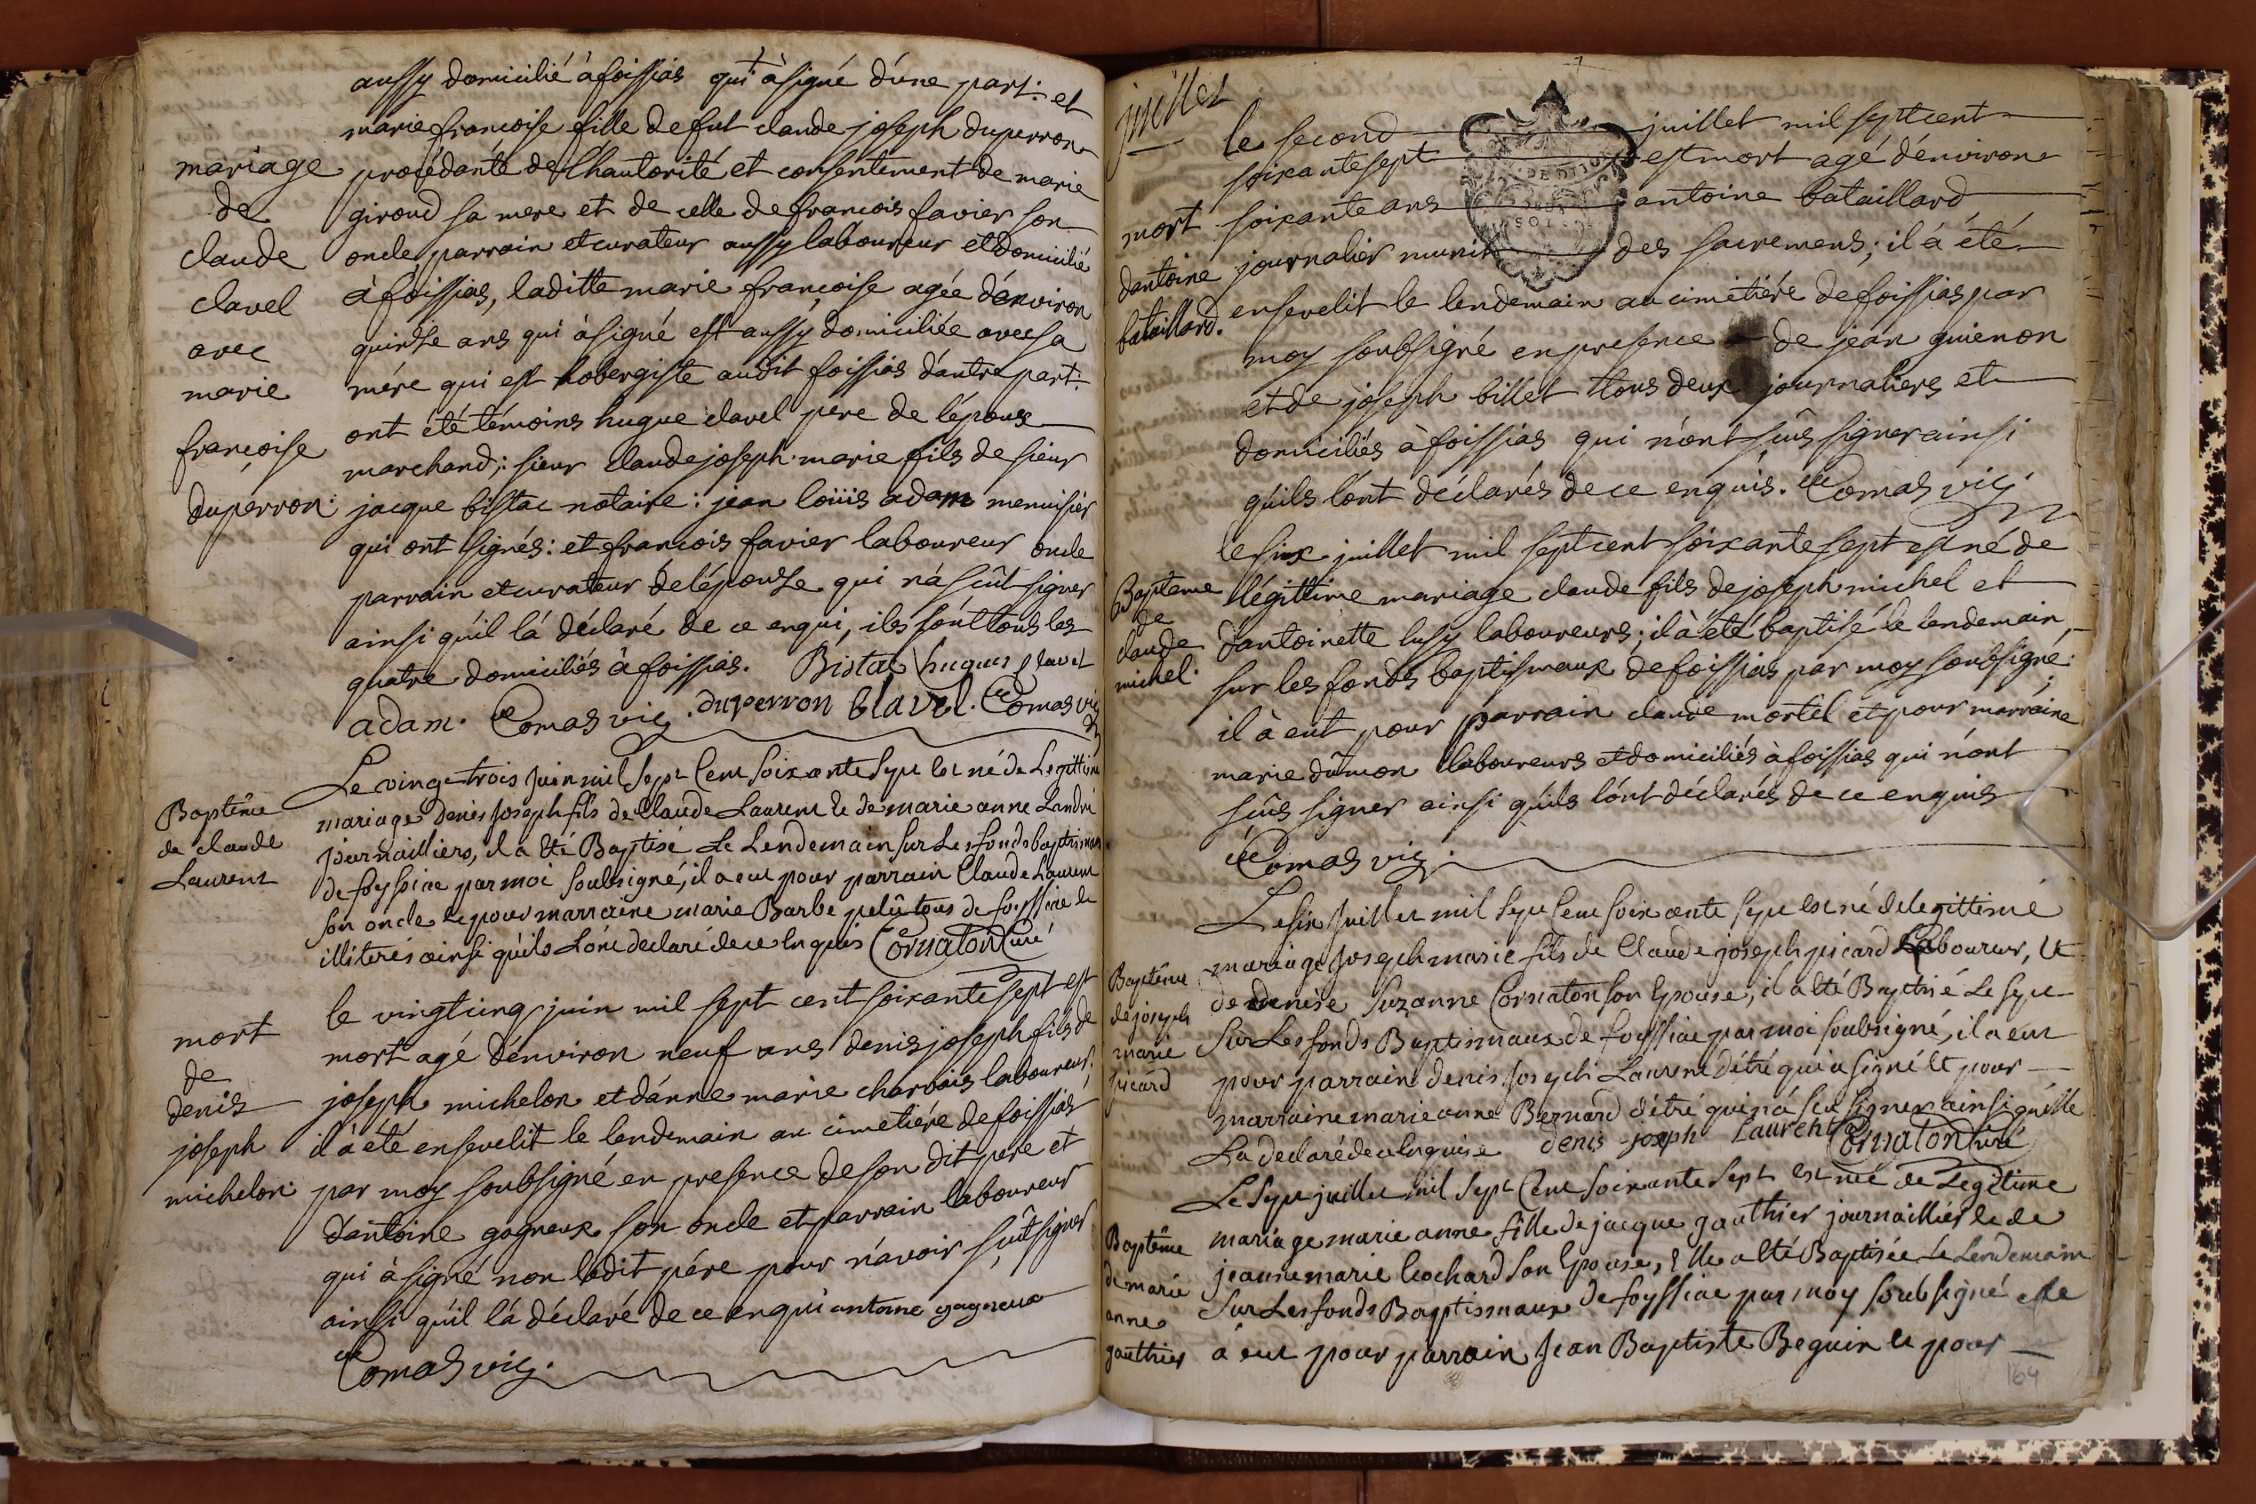 aussy domicilié à foissias qui à signé d'une part: et
marie francoise fille de fut claude joseph duperron
mariage
de
claude
clavel
avec
marie
francoise
duperron:
procédante de l'hautorité et consentement de marie
giroud sa mere et de celle de francois favier son
oncle parrain et curateur aussy laboureur et domicilié
à foissias, laditte marie francoise agée d'environ
quinse ans qui à signé est aussy domiciliée avec sa
mére qui est hobergiste audit foissias d'autre part:
ont été témoins hugue clavel pere de l'époux
marchand; sieur claude joseph marie fils de sieur
jacque bistac notaire: jean loüis adam menuisier
qui ont signés: et francois favier laboureur oncle
parrain et curateur de l'épouse qui n'a scût signer
ainsi qu'il l'a déclaré de ce enqui, ils sont tous les
quatre domiciliés à foissias. Bistac hugues clavel
adam. Comas vic. duperron Clavel. Comas vic
Le vingt-trois Juin mil Sept Cent soixante Sept est né de Legittime
Baptême
de claude
Laurent
mariage Denis Joseph fils de Claude Laurent et de marie anne Landré
Journailliers, il a été Baptisé Le Lendemain sur Les fonds baptismaux
de foyssiae par moi soubsigné, il a eut pour parrain Claude Laurent
son oncle et pour marraine marie Barbe pelû tous de foyssiae et
illiterés ainsi qu'ils L'ont declaré de ce Enquis Cornaton Curé
mort
de
denis
joseph
michelon:
le vingtcinq juin mil sept cent soixante sept est
mort agé d'environ neuf ans denis joseph fils de
joseph michelon et d'anne marie charvais laboureurs:
il à été ensevelit le lendemain au cimetiére de foissias
par moy soubsigné en presence de son dit pere et
d'antoine gagneux son oncle et parrain laboureur
qui à signé non ledit pére pour n'avoir scût signer
ainsi qu'il l'a déclaré de ce enqui antoine gagneux
Comas vic.
juillet
le second juillet mil sept cent
soixante sept est mort agé d'environ
mort
d'antoine
bataillard.
soixante ans antoine bataillard
journalier munit des sacremens; il á été
ensevelit le lendemain au cimetiére de foissias par
moy soubsigné en presence de jean guienon
et de joseph billet tous deux journaliers et
domiciliés à foissias qui n'ont sçûs signer ainsi
qu'ils l'ont déclarés de ce enquis. Comas vic.
le six juillet mil sept cent soixante sept est né de
Bapteme
de
claude
michel.
légittime mariage claude fils de joseph michel et
d'antoinette lusy laboureurs; il à été baptisé le lendemain
sur les fonds baptismaux de foissias par moy soubsigné:
il à eut pour parrain claude mortel et pour marraine
marie dumon laboureurs et domiciliés à foissias qui n'ont
sçûs signer ainsi qu'ils l'ont déclarés de ce enquis
Comas vic.
Le six Juillet mil Sept Cent soixante Sept est né de Legittime
Baptême
de joseph
marie
picard
mariage Joseph marie fils de Claude joseph picard Laboureur, et
de denise Suzanne Cornaton son Epouse, il a été Baptisé Le Sept
Sur Les fonds Baptismaux de foyssiae par moi soubsigné, il a eut
pour parrain denis Joseph Laurent d'étré qui a signé et pour
marraine marie anne Bernard d'étré qui n'a scu signer ainsi qu'elle
La declaré de ce Enquise denis joseph Laurent Cornaton Curé
Le Sept juillet mil Sept Cent soixante Sept est née de Legitime
Baptême
de marie
anne
gauthier
mariage marie anne fille de jacque gauthier journaillier et de
jeanne marie Cochard son Epouse, Elle a été Baptisée Le Lendemain
Sur Les fonds Baptismaux de foyssiae par moy soubsigné elle
à eut pour parrain Jean Baptiste Beguin et pour
164